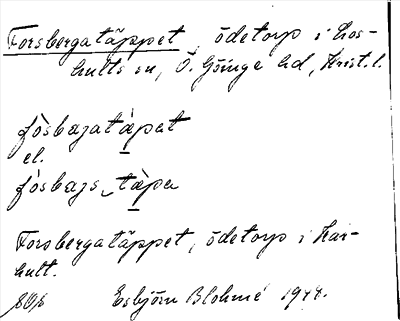 Forsbergatäppet, ödetorp i Los-
hults sn, Ö. Göinge hd, Krist. l.
fòsbajatàpat
el.
fósbajs tàpa
Forsbergatäppet, ödetorp i Kar-
hult.
Esbjörn Blohmé 1948.